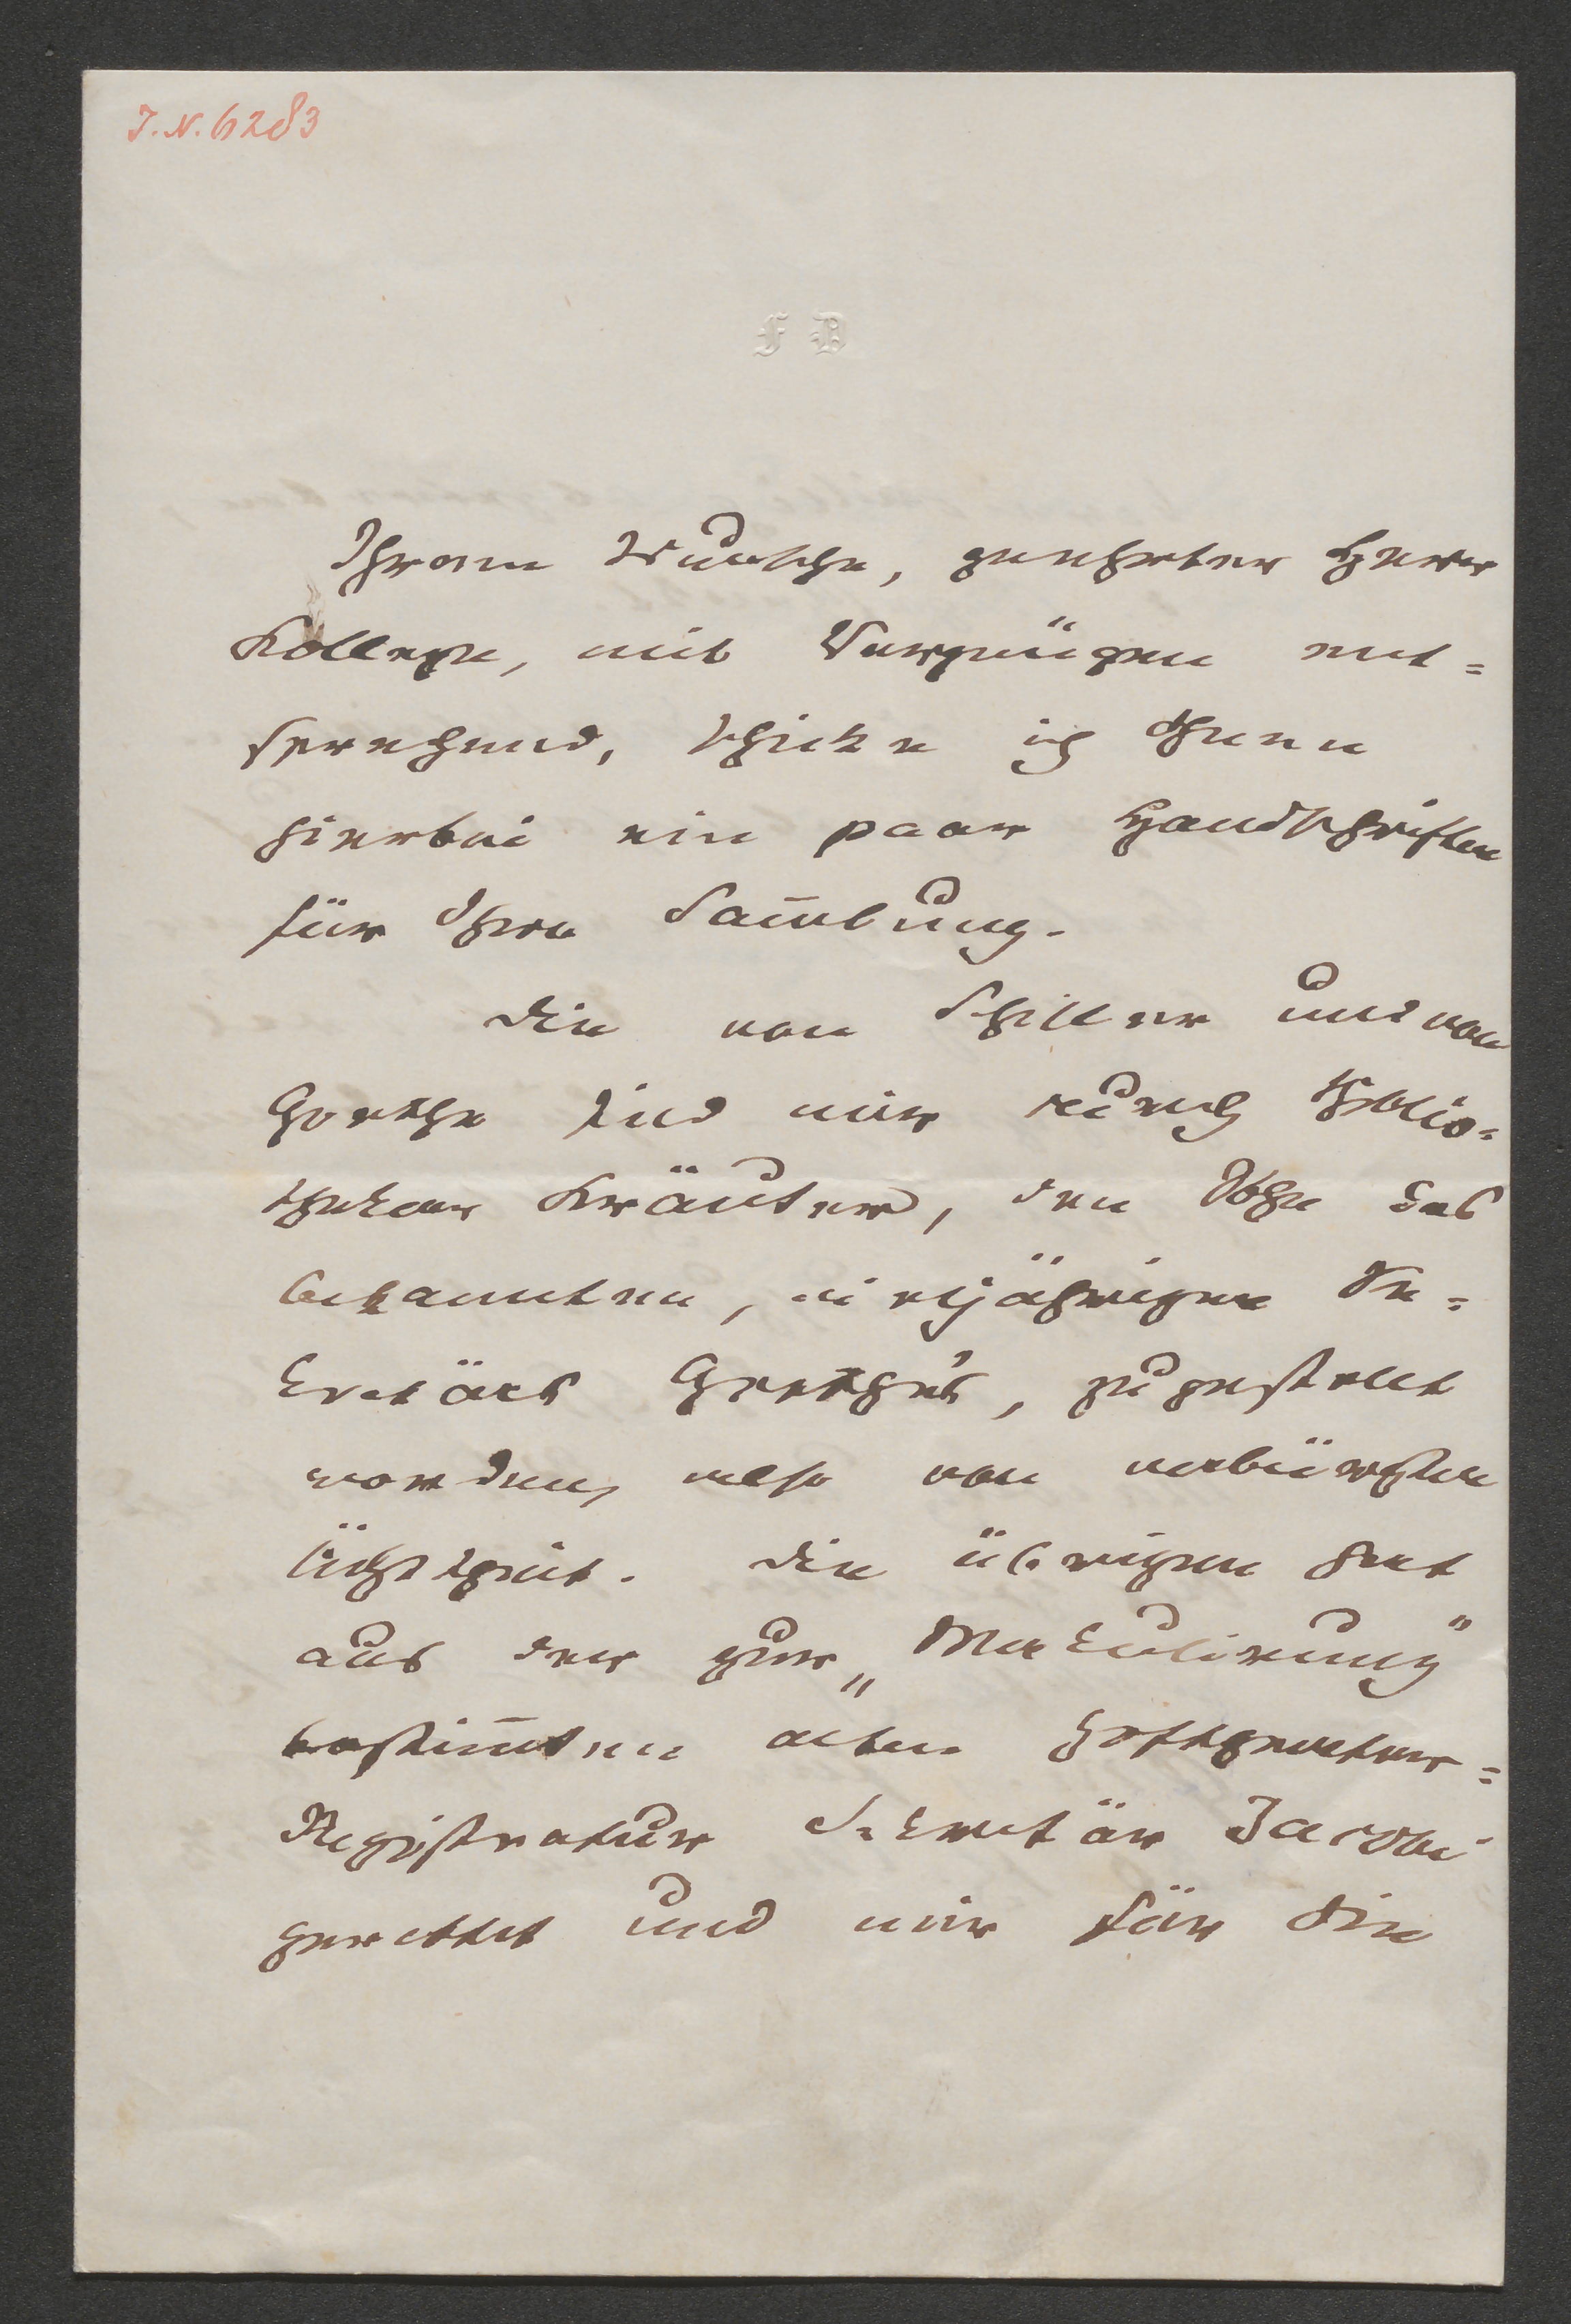 J.N. 6283
F D
Ihrem Wunsche, geehrter Herr
Kollege, mit Vergnügen ent=
sprechend, schicke ich Ihnen
hierbei ein paar Handschriften
für Ihre Sam̅lung.
Die von Schiller und von
Goethe sind mir durch Biblio=
thekar Kräuter, den Sohn des
bekannten, vieljährigen Se=
kretärs Goethe's, zugestellt
worden, also von verbürgter
Ächtheit. Die übrigen hat
aus der zur „Makulirung"
bestim̅ten alten Hoftheater=
Registratur Sekretär Jacobi
gerettet und mir für die